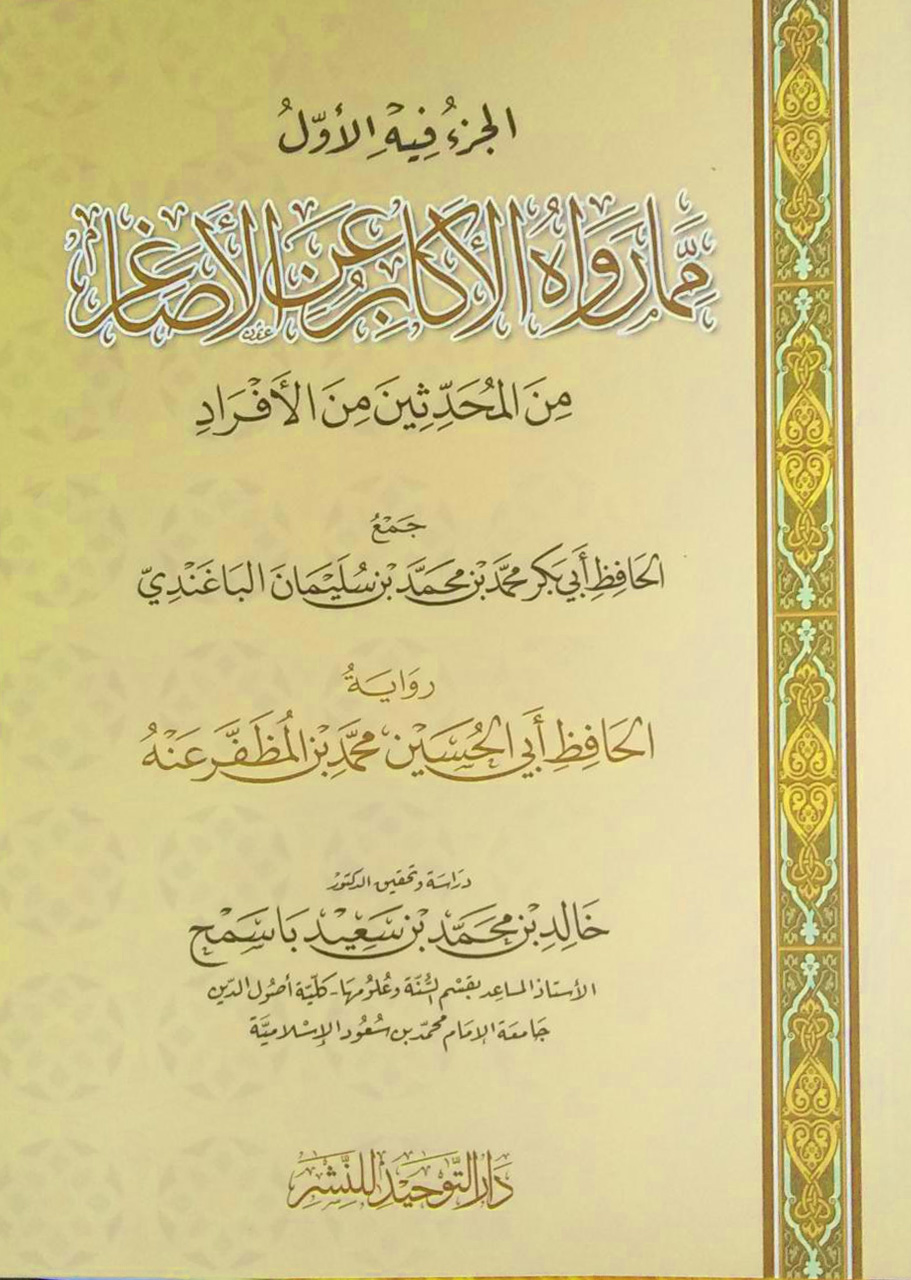 الجزءُ فِيهِ الأوّلُ
مِمَّا رَوَاهُ الأَكَابِرُ عَنِ الأَصَاغِرِ
مِنَ المُحَدِّثِينَ مِنَ الأَفْرَادِ
جَمْعُ
الحَافِظِ أَبِي بَكْرٍ محمَّد بْن محَمَّد بْن سُلَيْمَانَ البَاغَنْدِيّ
رِوَايَةُ
الحَافِظِ أَبِي الحُسَيْنِ محمَّدِ بْنِ المُظَفَّرِ عَنْهُ
دراسة وتحقيق الدكتور
خَالِدِ بْن محَمَّد بْن سَعِيْد بَاسَمْح
الأستاذ المساعد بقسْم السُّنّة وعُلُومهَا - كليّة أصُول الدّين
جامعَة الإمَام محمّد بن سُعُود الإسْلاميَّة
دَارُ التَّوْحِيدِ لِلنَّشْرِ